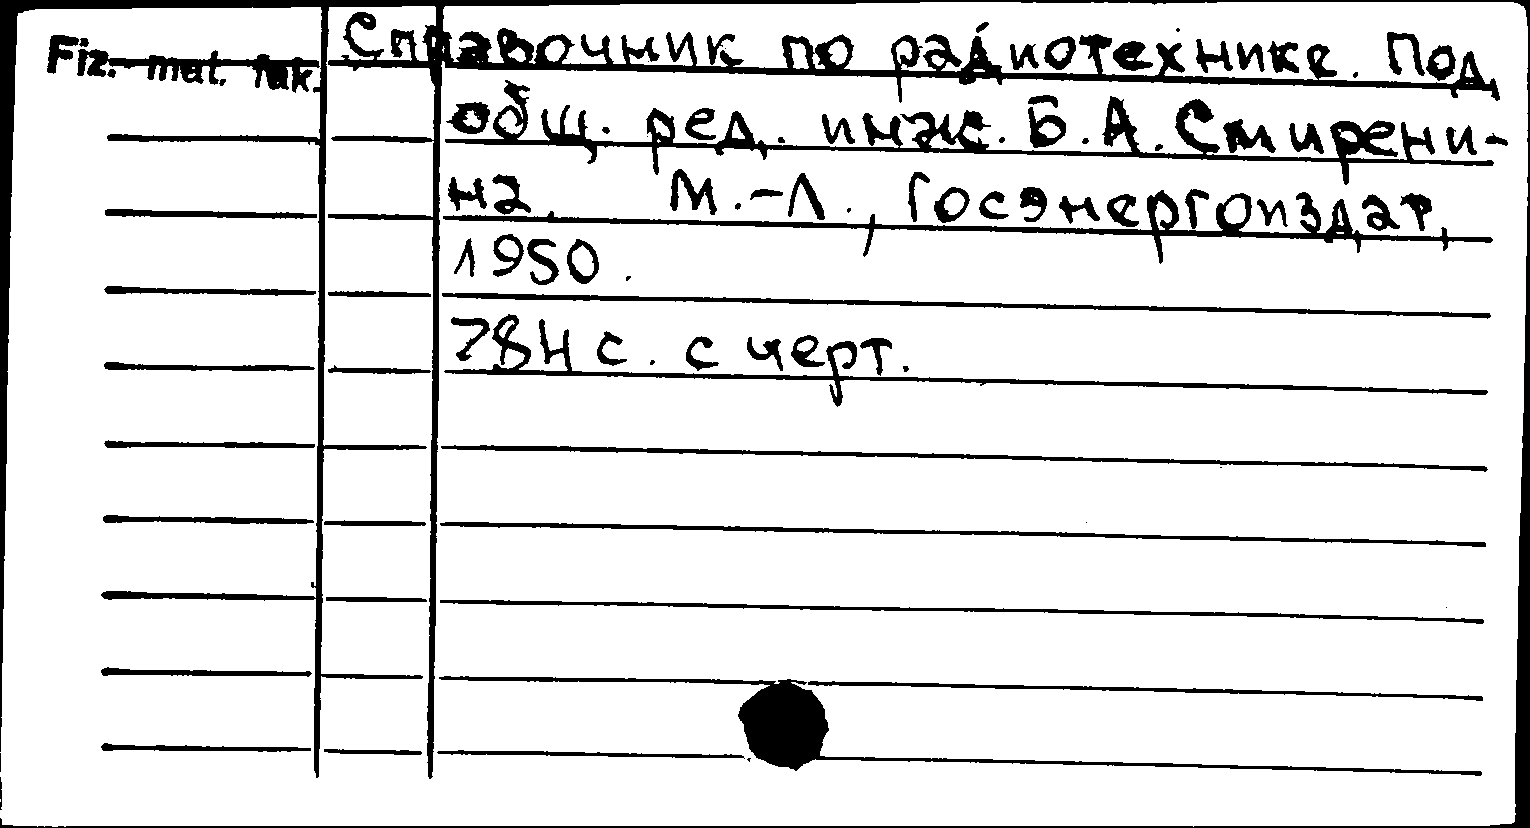 Fiz. mat. fak.
Справочник по радиотехнике. Под
общ. ред. инж. Б. А. Смирени-
на. М.-Л., Госэнергоиздат,
1950.
784 с. с черт.